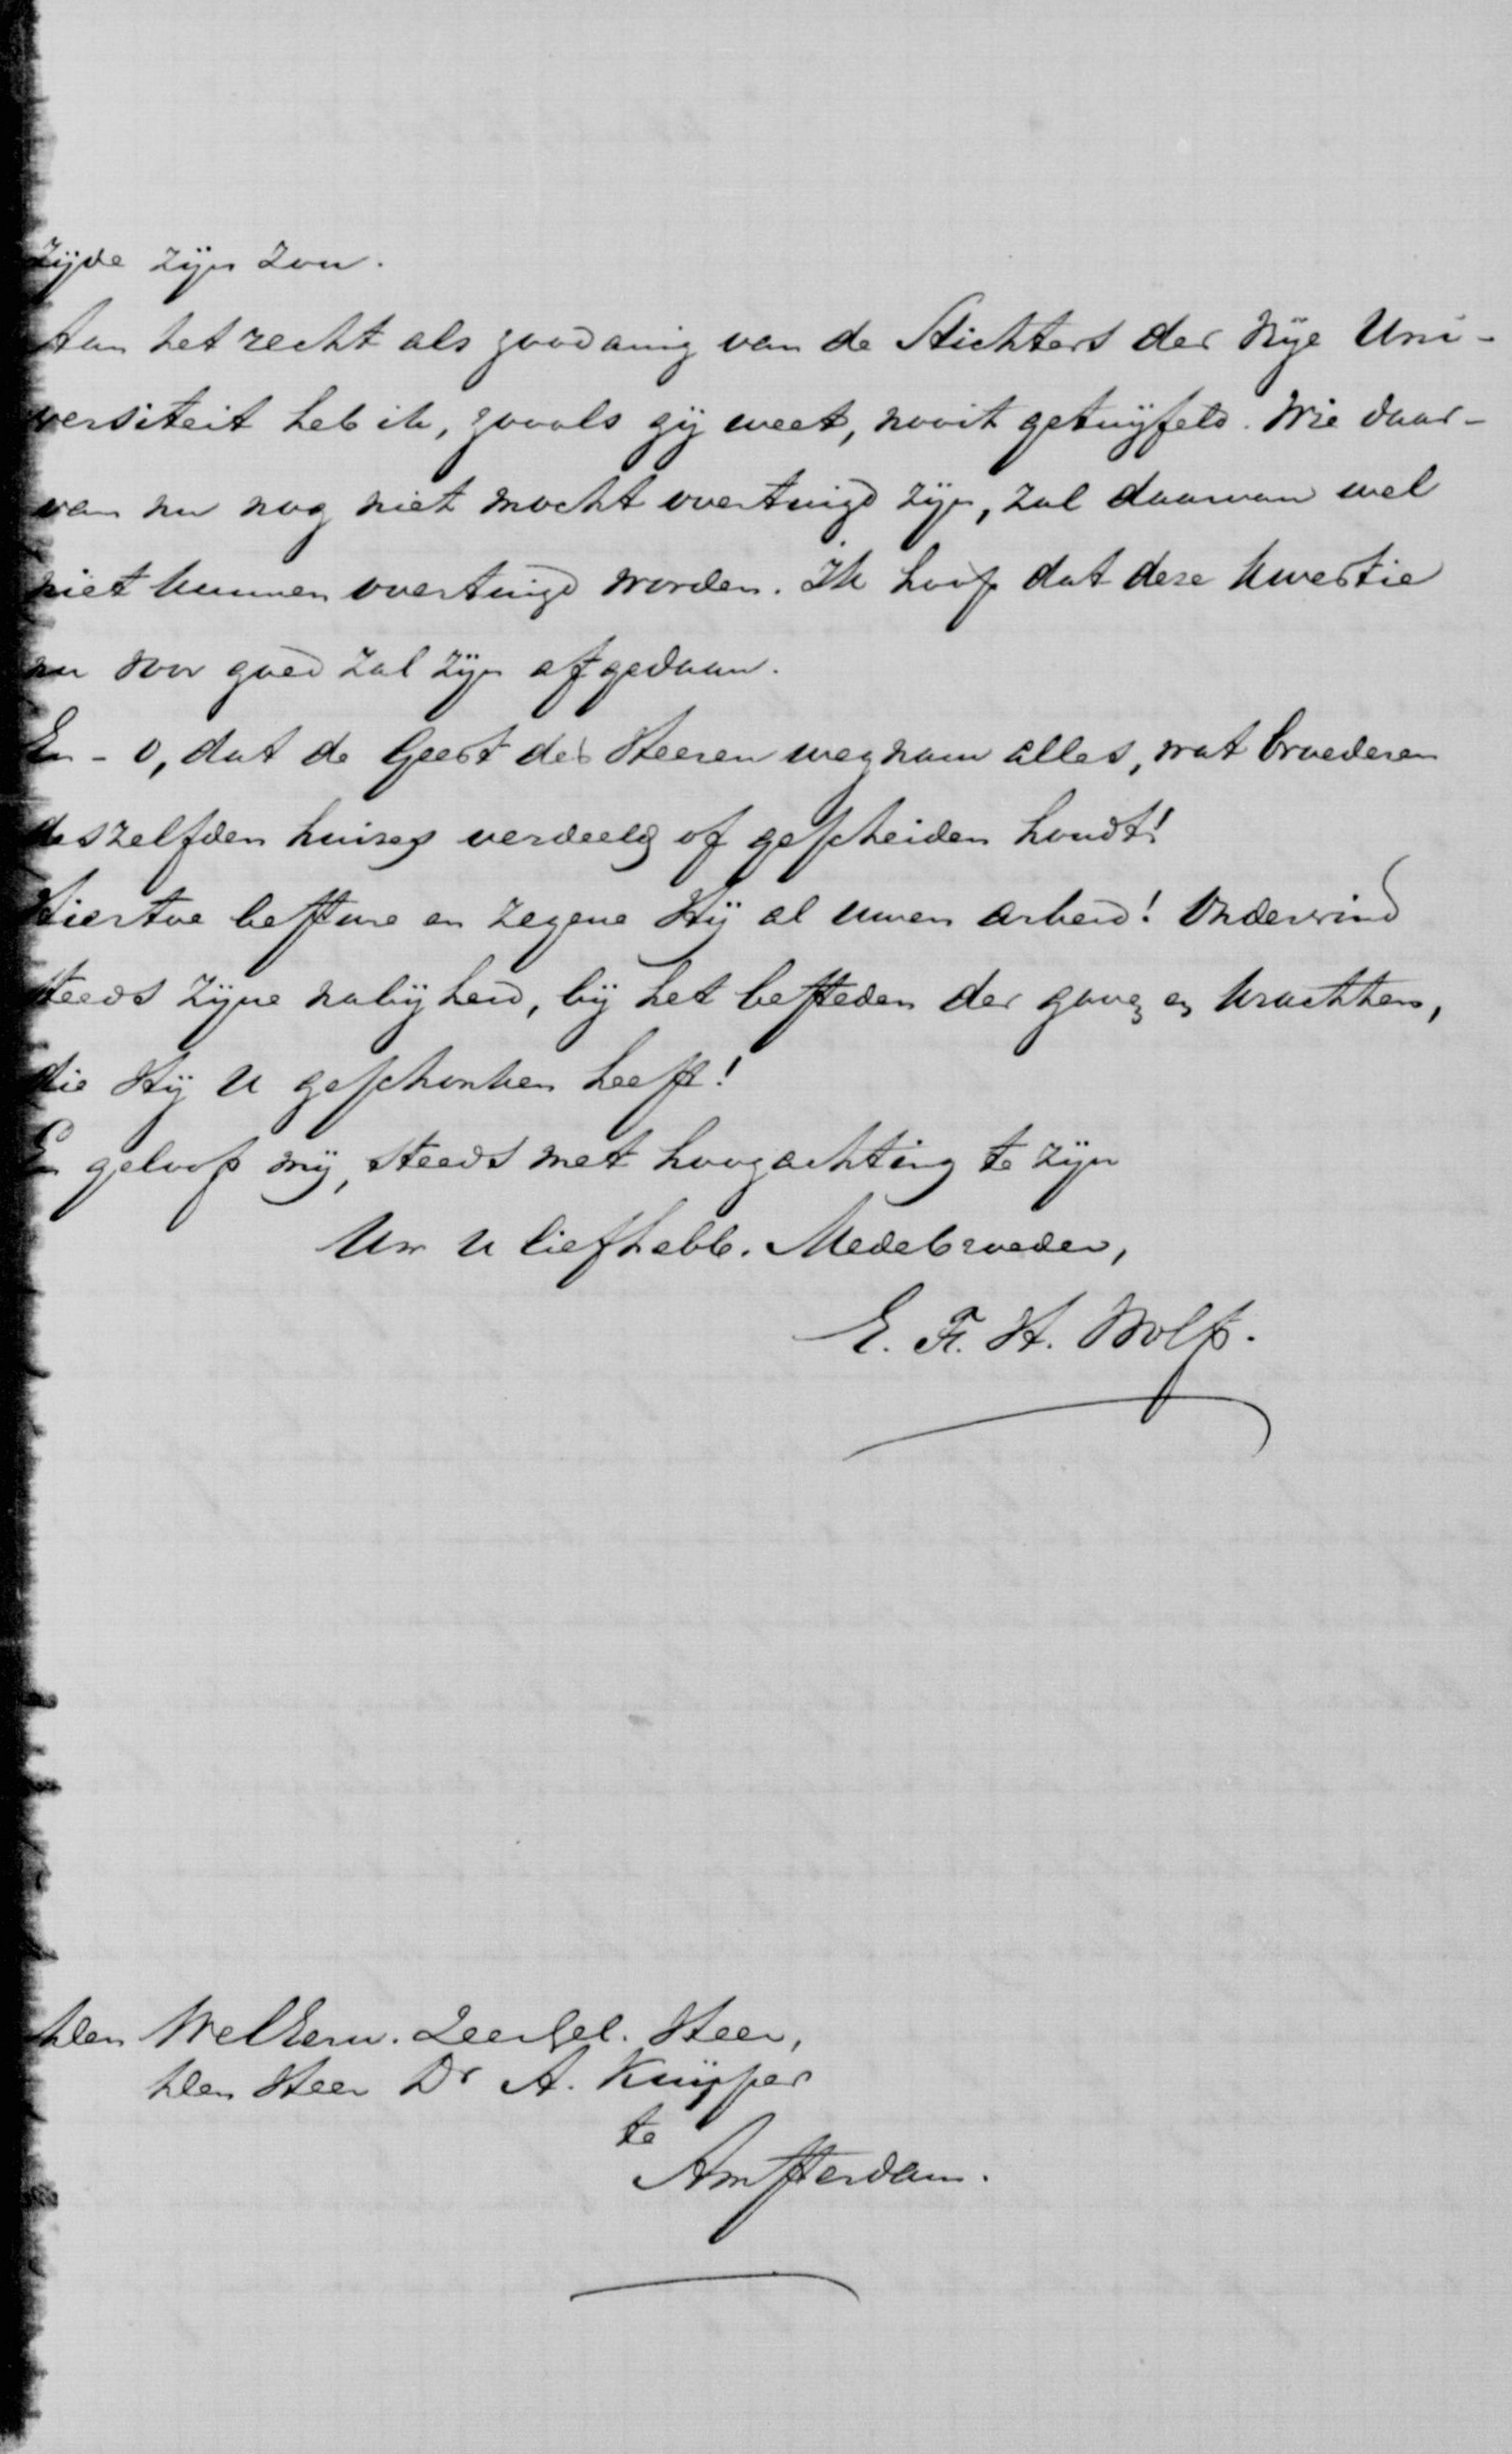 zijde zijn zou.
Aan het recht als zoodanig van de Stichters der Vrije Uni-
versiteit heb ik, zooals gij weet, nooit getwijfeld. Wie daar-
van nu nog niet mocht overtuigd zijn, zal daarvan wel
niet kunnen overtuigd worden. Ik hoop dat deze kwestie
nu voor goed zal zijn afgedaan.
En - o, dat de Geest des Heeren wegnam alles, wat broederen
deszelfden huizes verdeeld of gescheiden houdt!
Hiertoe besture en zegene Hij al uwen arbeid! Ondervind
steeds zijne nabijheid, bij het besteden der gaven en krachten,
die Hij U geschonken heeft!
En geloof mij, steeds met hoogachting te zijn
Uw U liefhebb. Medebroeder,
E. F. H. Wolf.
Den WelEerw. ZeerGel. Heer,
den Heer Dr A. Kuijper
te
Amsterdam.